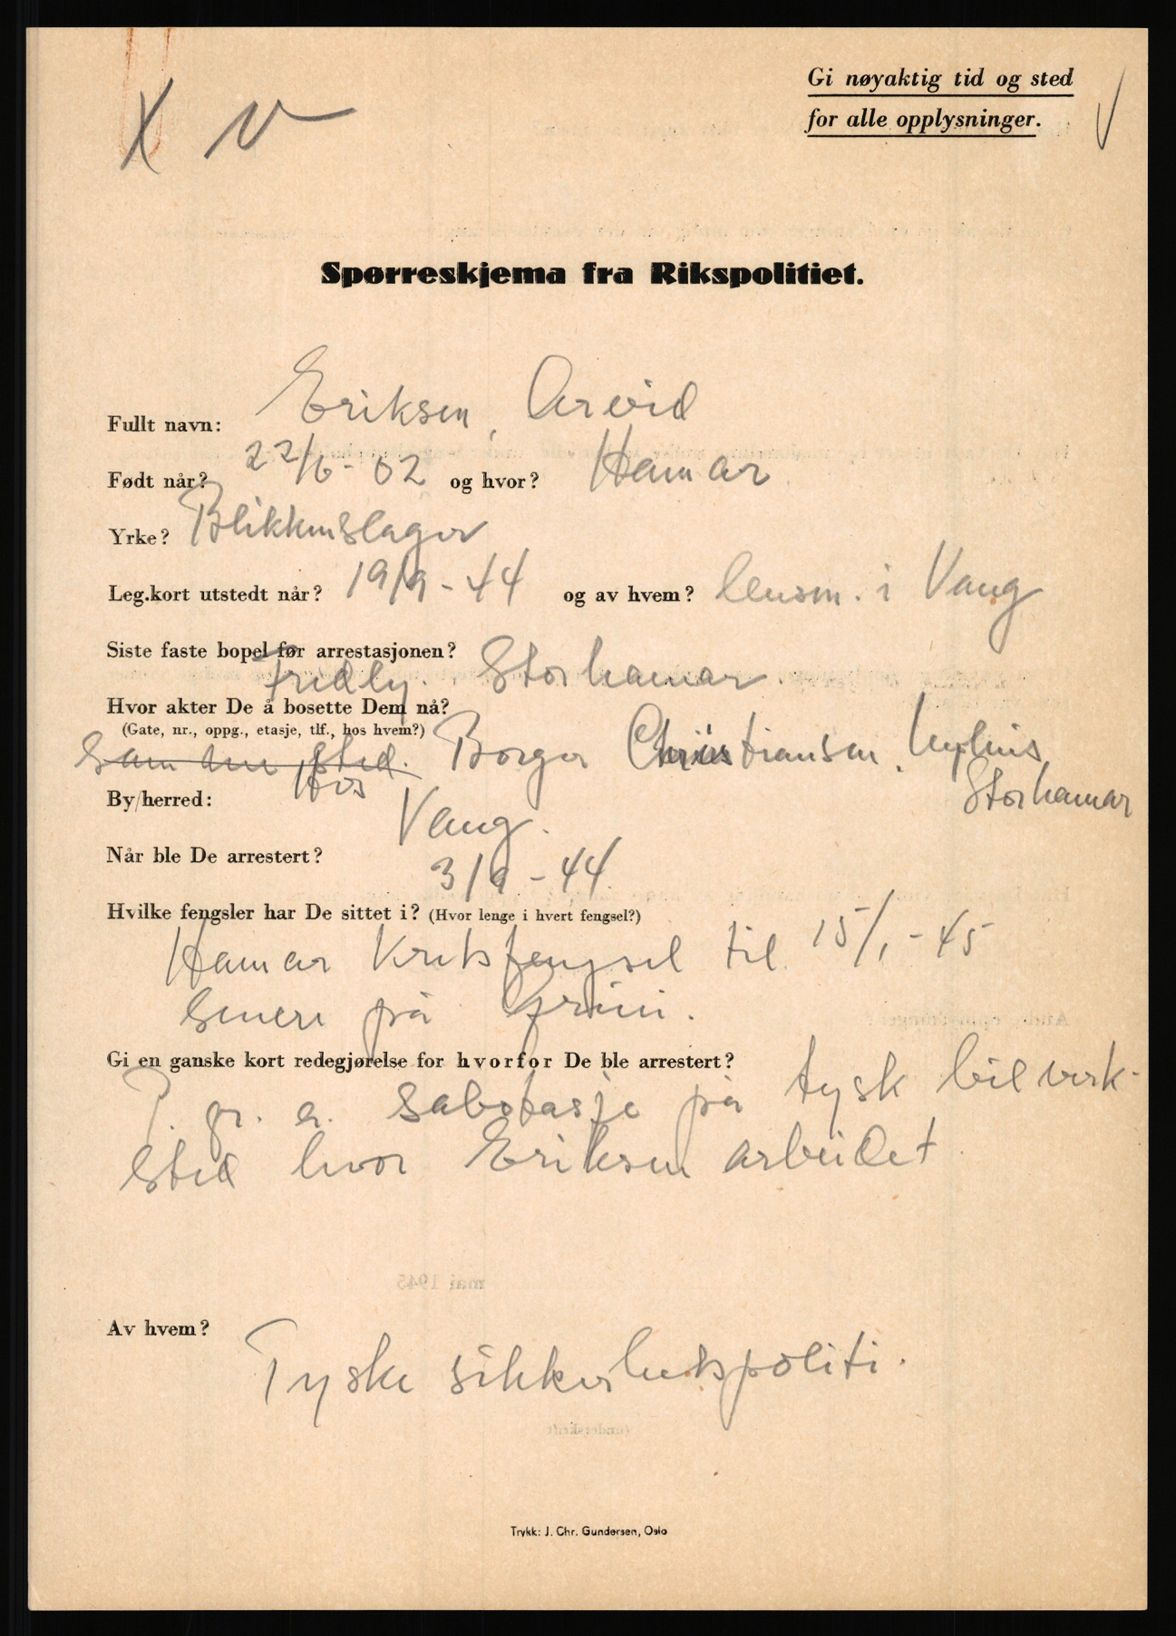 X V
Gi nøyaktig tid og sted
for alle opplysninger.
Spørreskjema fra Rikspolitiet.
Fullt navn: Eriksen, Arvid
Født når? 22/6-02 og hvor? Hamar
Yrke? Blikkenslager
Leg.kort utstedt når? 19/9-44 og av hvem? lensm. i Vang
Siste faste bopel før arrestasjonen?
Fredly. Storhamar.
Hvor akter De å bosette Dem nå?
(Gate, nr., oppg., etasje, tlf., hos hvem?)
Samme sted. Hos Borger Christiansen,
Storhamar
By/herred: Vang.
Når ble De arrestert?
3/9-44.
Hvilke fengsler har De sittet i? (Hvor lenge i hvert fengsel?)
Hamar Kretsfengsel til 15/1-45
senere på Grini.
Gi en ganske kort redegjørelse for hvorfor De ble arrestert?
P. gr. a. sabotasje på tysk bilverk-
sted hvor Eriksen arbeidet.
Av hvem?
Tyske sikkerhetspoliti.
Trykk: J. Chr. Gundersen, Oslo